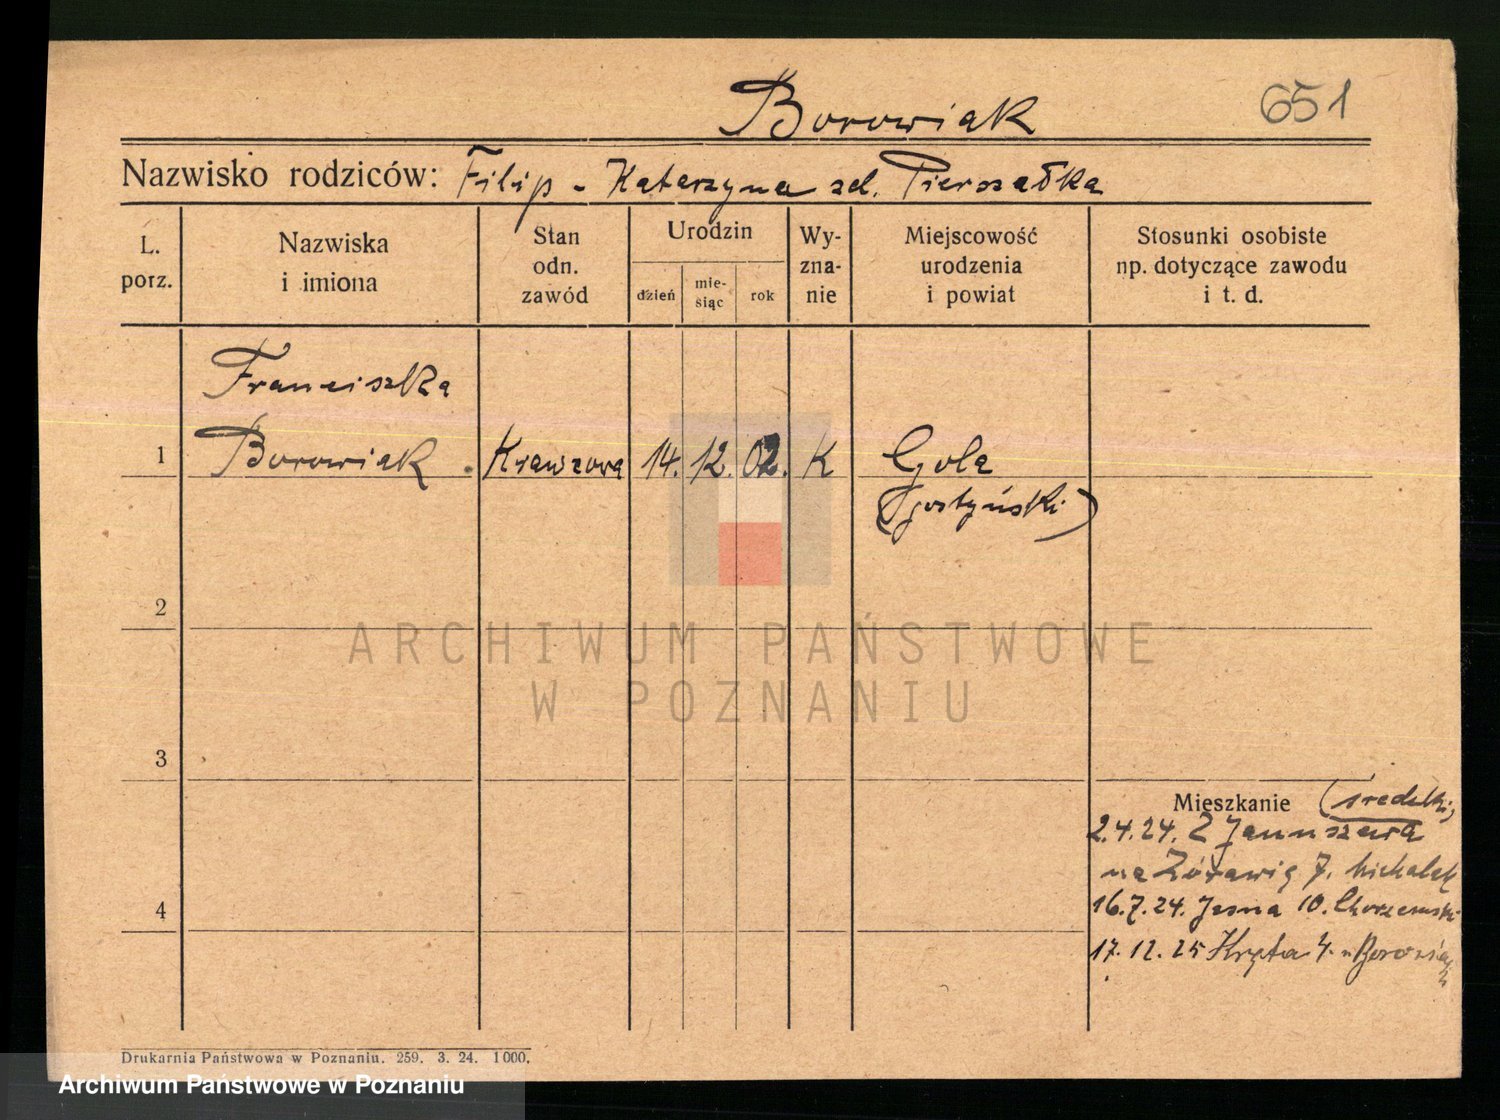 Borowiak
651
Nazwisko rodziców: Filip - Katarzyna zd. Pierszałka
L. porz.
Nazwiska i imiona
Stan odn. zawód
Urodzin
dzień
mie-
siąc
rok
Wy-
zna-
nie
Miejscowość urodzenia i powiat
Stosunki osobiste
np. dotyczące zawodu
i t. d.
Franciszka
1 Borowiak Krawcowa 14. 12. 02. K Gola
(gostyński)
2
ARCHIWUM PAŃSTWOWE
W POZNANIU
3
Mieszkanie
2.4.24. Z Januszewa
na Żórawią 7.
4
16.7.24. Jasna 10. Chorzemski
17.12.25 Kręta 4.
Drukarnia Państwowa w Poznaniu. 259. 3. 24. 1000.
Archiwum Państwowe w Poznaniu